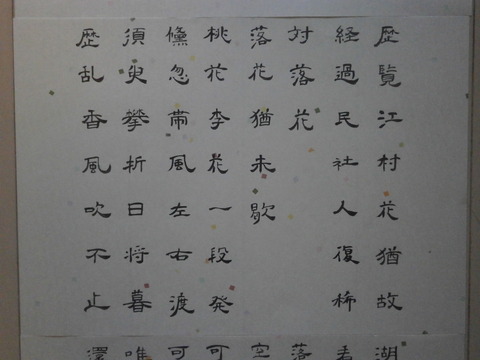 歴覧江村花猶故湖
経過民社人復稀
対落花落
落花猶未歇空
桃花李花一段発可
儵忽帯風左右渡可
須臾攀折日将暮唯
歴乱香風吹不止還